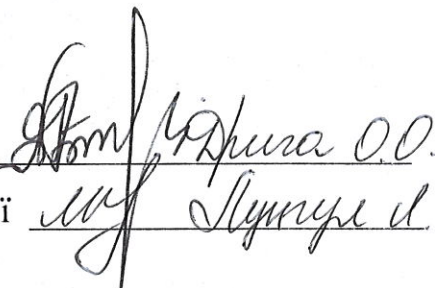 Дрига О.О.
ї Лунгул Л.